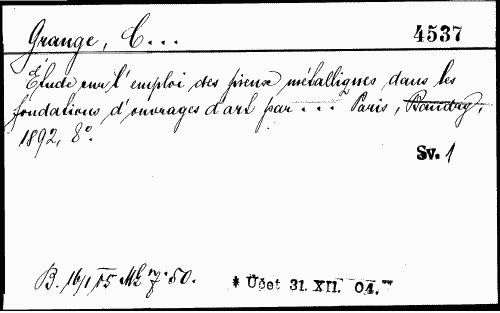 Grange, C... 4537
Étude sur l'emploi des pieux métalliques dans les
fondations d'ouvrages d'art par ... Paris, Baudry,
1892, 8°.
Sv. 1
B. 16/1 05 Mk 7·50. * Účet 31. XII. 04.